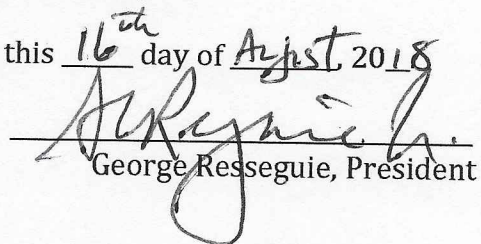 this 16th day of August 2018
George Resseguie, President